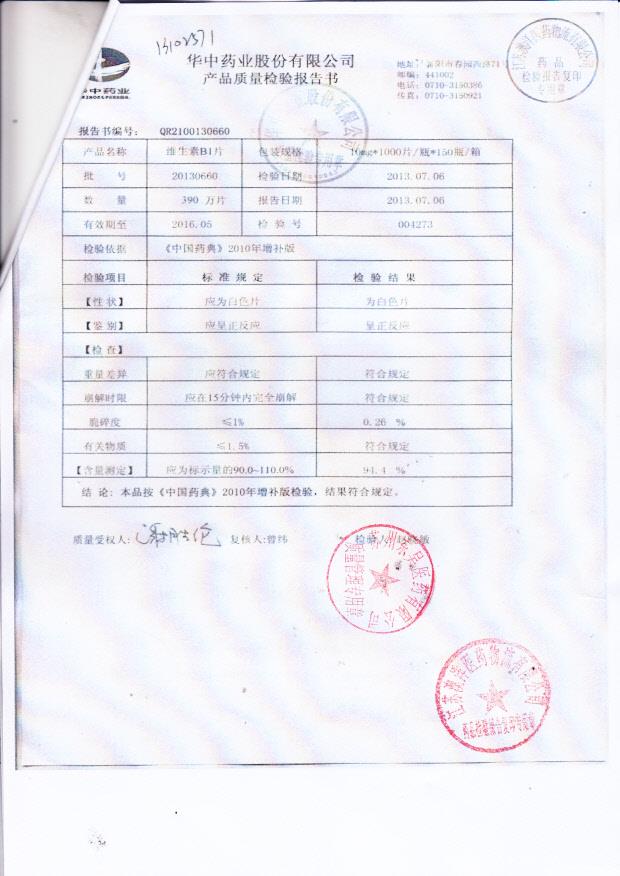 13102571
华中药业
华中药业股份有限公司
产品质量检验报告书
邮编: 441002
电话: 0710-3150386
传真: 0710-3150921
药品
检验报告复印
专用章
报告书编号: QR2100130660
产品名称 维生素B1片 包装规格 10mg*1000片/瓶*150瓶/箱
批 号 20130660 检验日期 2013.07.06
数 量 390 万片 报告日期 2013.07.06
有效期至 2016.05 检 验 号 004273
检验依据 《中国药典》2010年增补版
检验项目 标 准 规 定 检 验 结 果
【性 状】 应为白色片 为白色片
【鉴 别】 应呈正反应 呈正反应
【检 查】
重量差异 应符合规定 符合规定
崩解时限 应在15分钟内完全崩解 符合规定
脆碎度 ≤1% 0.26 %
有关物质 ≤1.5% 符合规定
【含量测定】 应为标示量的90.0~110.0% 94.4 %
结 论: 本品按《中国药典》2010年增补版检验, 结果符合规定。
质量受权人: 复核人:曾纬 检验人:
质量管理专用章